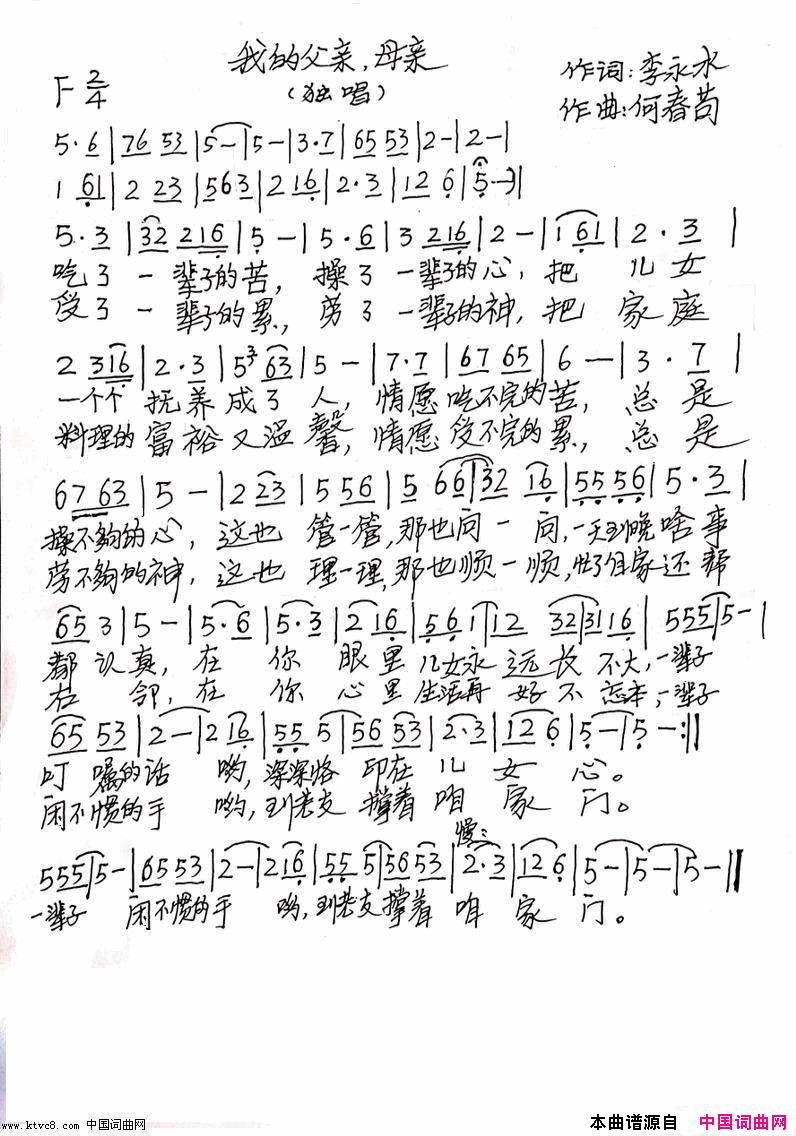 我的父亲,母亲
(独唱)
F 2/4
作词:李永水
作曲:何春苟
5·6|76 53|5—|5—|3·7|65 53|2—|2—|
1 61|2 23|563|216|2·3|12 6|5—|
5·3|32 216|5—|5·6|3 216|2—|1 61|2·3|
吃了一辈子的苦, 操了一辈子的心, 把 儿女
受了一辈子的累, 劳了一辈子的神, 把 家庭
2 316|2·3|5 3 63|5—|7·7|67 65|6—|3·7|
一个个 抚养成了人, 情愿吃不完的苦, 总是
料理的富裕又温馨, 情愿受不完的累, 总是
67 63|5—|2 23|5 56|5 66|32 16|55 56|5·3|
操不够的心, 这也 管一管, 那也问一问, 一天到晚啥事
劳不够的神, 这也 理一理, 那也顺一顺, 忙了自家还帮
65 3|5—|5·6|5·3|2 16|56 1|12 32|31 16|555|5—|
都认真, 在你眼里儿女永远长不大, 一辈子
右邻, 在你心里生活再好不忘本, 一辈子
65 53|2—|2 16|55 5|56 53|2·3|12 6|5—|5—:||
叮嘱的话 哟, 深深烙印在儿女心。
闲不惯的手 哟, 到老支撑着咱家门。
慢:
555|5—|65 53|2—|2 16|55 5|56 53|2·3|12 6|5—|5—|5—||
一辈子 闲不惯的手 哟, 到老支撑着咱家门。
www.ktvc8.com 中国词曲网
本曲谱源自 中国词曲网